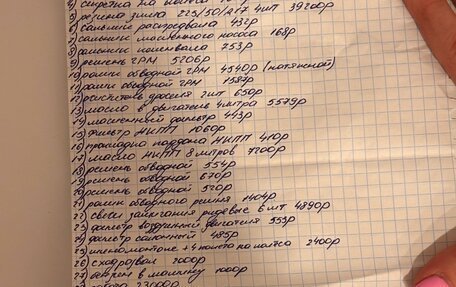 4) секретка на колёса
5) резина зима 225/50/R17 4шт 39200р
6) сальник распредвала 432р
7) сальник маслянного насоса 168р
8) сальник коленвала 753р
9) ремень ГРМ 5206р
10) ролик обводной ГРМ 4540р (натяжной)
11) ролик обводной ГРМ 1587р
12) 2шт 650р
13) масло в двигатель 4литра 5579р
14) маслянный фильтр 443р
15) фильтр АКПП 1060р
16) прокладка поддона АКПП 410р
17) масло АКПП 8литров 7200р
18) ремень обводной 554р
19) ремень обводной 670р
20) ремень обводной 520р
21) ролик обводного ремня 1404р
22) свечи зажигания 6шт 4890р
23) фильтр воздушный двигателя 553р
24) фильтр салонный 485р
25) + 4 колёса 2400р
26) сходразвал 2000р
27) в машину 1000р
23000р